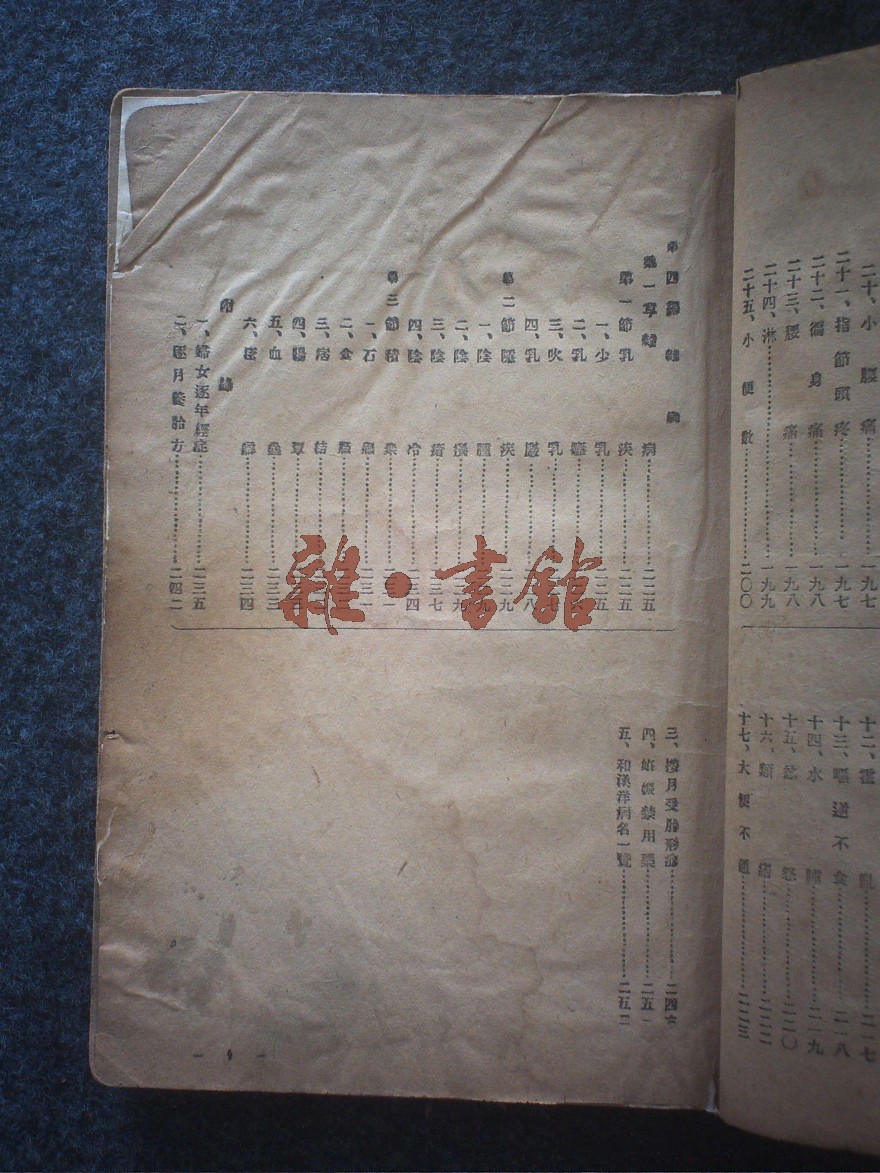 二十、小腰痛……一九七
二十一、指節頭疼……一九七
二十二、遍身痛……一九八
二十三、腰痛……一九八
二十四、淋……一九九
二十五、小便數……二〇〇
十二、霍亂……二一七
十三、嘔逆不食……二一八
十四、水腫……二一九
十五、怒……二二〇
十六、類……二二二
十七、大便不通……二二三
第四編 雜病
第一章 雜病……二二五
第一節 乳疾……二二五
一、少乳……二五
二、乳癰
三、吹乳……七
四、乳巖……八
第二節 陰疾……二九
一、陰腫……九
二、陰癢……九
三、陰瘡……三七
四、陰冷……二三四
第三節 積聚……一
一、石瘕……二三一
二、食
三、痞結
四、腸覃
五、血蠱……二三三
六、痃癖……二三四
附錄
一、婦女逐年經症……二三五
二、逐月養胎方……二四二
三、按月受胎形……二四六
四、妊娠禁用藥……二五一
五、和漢洋病名一覽……二五二
— 9 —
雜·書館